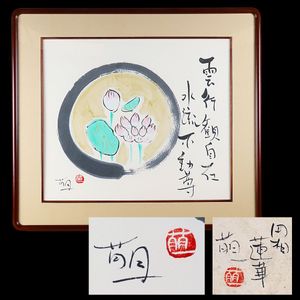 雲行観自在
水流不動尊
萌月
萌月
円相
蓮華
萌